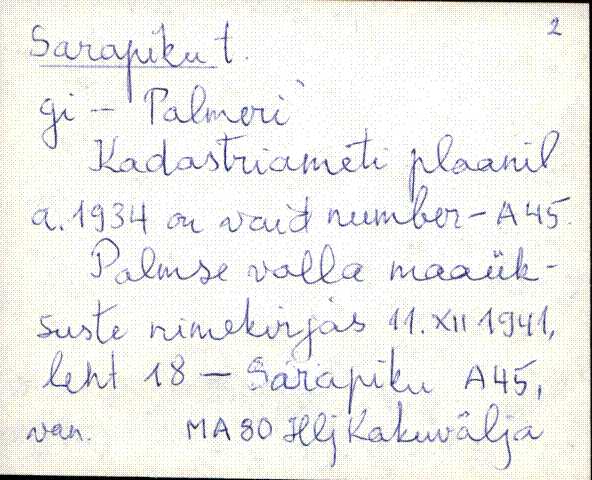 2
Sarapiku t.
gi - Palmeri`
Kadastriameti plaanil
a. 1934 on vaid number - A45.
Palmse valla maaük-
suste nimekirjas 11. XII 1941,
leht 18 - Sarapiku A45,
van. MA 80 Hlj Kakuvälja